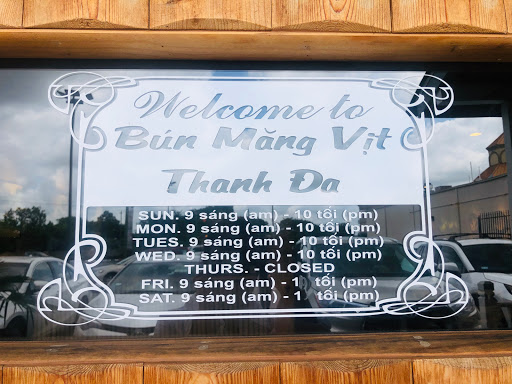 Welcome to
Bún Măng Vịt
Thanh Đa
SUN. 9 sáng (am) - 10 tồi (pm)
MON. 9 sáng (am) - 10 tồi (pm)
TUES. 9 sáng (am) - 10 tồi (pm)
WED. 9 sáng (am) - 10 tồi (pm)
THURS. - CLOSED
FRI. 9 sáng (am) - 1 tồi (pm)
SAT. 9 sáng (am) - 1 tồi (pm)